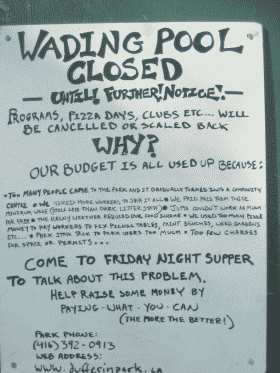 WADING POOL
CLOSED
— UNTIL! FURTHER! NOTICE! —
PROGRAMS, PIZZA DAYS, CLUBS ETC... WILL
BE CANCELLED OR SCALED BACK
WHY?
OUR BUDGET IS ALL USED UP BECAUSE:
• TOO MANY PEOPLE CAME TO THE PARK AND IT GRADUALLY TURNED INTO A COMMUNITY
CENTRE • WE NEEDED MORE WORKERS TO JOIN IT ALL • WE PAID
MINIMUM WAGE
• JUTTA COULDN'T WORK AS MUCH
FOR FREE • THE RAINY WEATHER REQUIRED • WE USED TOO MUCH
MONEY TO PAY WORKERS TO FIX PICNIC TABLES, PAINT BENCHES, GARDENS
ETC... • PARK STAFF TO PARK USERS TOO MUCH • TOO FEW CHARGES
FOR SPACE OR PERMITS...
COME TO FRIDAY NIGHT SUPPER
TO TALK ABOUT THIS PROBLEM.
HELP RAISE SOME MONEY BY
PAYING-WHAT-YOU-CAN
(THE MORE THE BETTER!)
PARK PHONE:
(416) 392-0913
WEB ADDRESS:
www.dufferinpark.ca